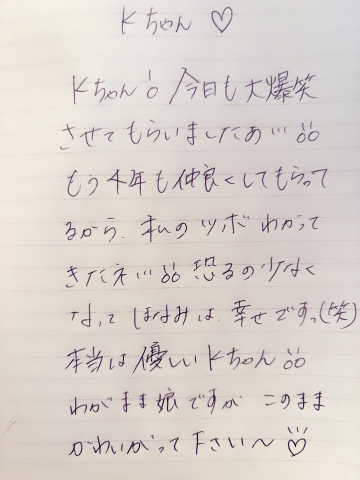 Kちゃん ♡
Kちゃん!! 今日も大爆笑
させてもらいましたぁ!!!
もう4年も仲良くしてもらって
るから、私のツボわかって
きたネ!!! 恐るの少なく
なって ほなみは、幸せですっ(笑)
本当は優しいKちゃん!!
わがまま娘ですが このまま
かわいがって下さい〜♡